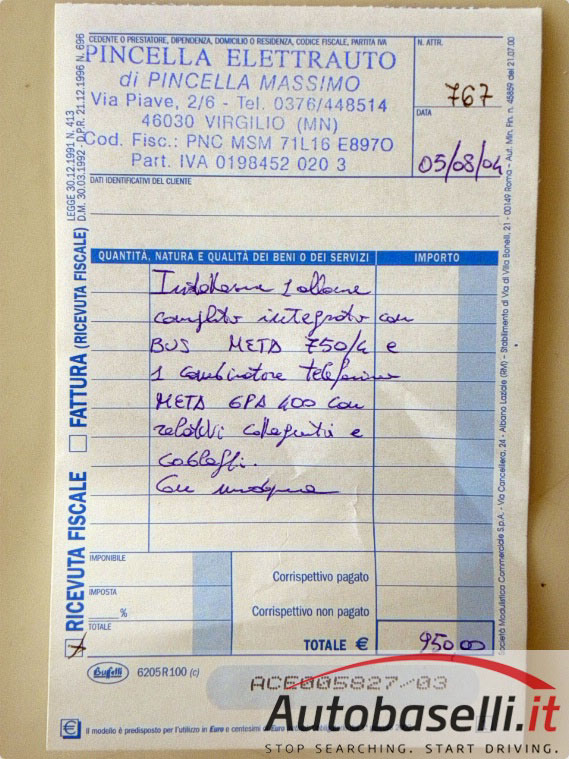 CEDENTE O PRESTATORE, DIPENDENZA, DOMICILIO O RESIDENZA, CODICE FISCALE, PARTITA IVA
PINCELLA ELETTRAUTO
di PINCELLA MASSIMO
Via Piave, 2/6 - Tel. 0376/448514
46030 VIRGILIO (MN)
Cod. Fisc.: PNC MSM 71L16 E897O
Part. IVA 0198452 020 3
N. ATTR.
767
DATA
05/08/04
DATI IDENTIFICATIVI DEL CLIENTE
LEGGE 30.12.1991 N. 413
D.M. 30.03.1992 - D.P.R. 21.12.1996 N. 696
RICEVUTA FISCALE
FATTURA (RICEVUTA FISCALE)
QUANTITÀ, NATURA E QUALITÀ DEI BENI O DEI SERVIZI
IMPORTO
1
completo integrato con
BUS META 750/4 e
1 combinatore telefonico
META GPA 400 con
relativi e
IMPONIBILE
IMPOSTA
%
TOTALE
Corrispettivo pagato
Corrispettivo non pagato
TOTALE €
950,00
x
Buffetti
6205R100 (c)
ACE005827/03
Il modello è predisposto per l'utilizzo in Euro e centesimi
Società Modulistica Commerciale S.p.A. - Via Cancelliera, 24 - Albano Laziale (RM) - Stabilimento di Via di Villa Bonelli, 21 - 00149 Roma - Aut. Min. Fin. n. 45859 del 21.07.00
Autobaselli.it
STOP SEARCHING. START DRIVING.